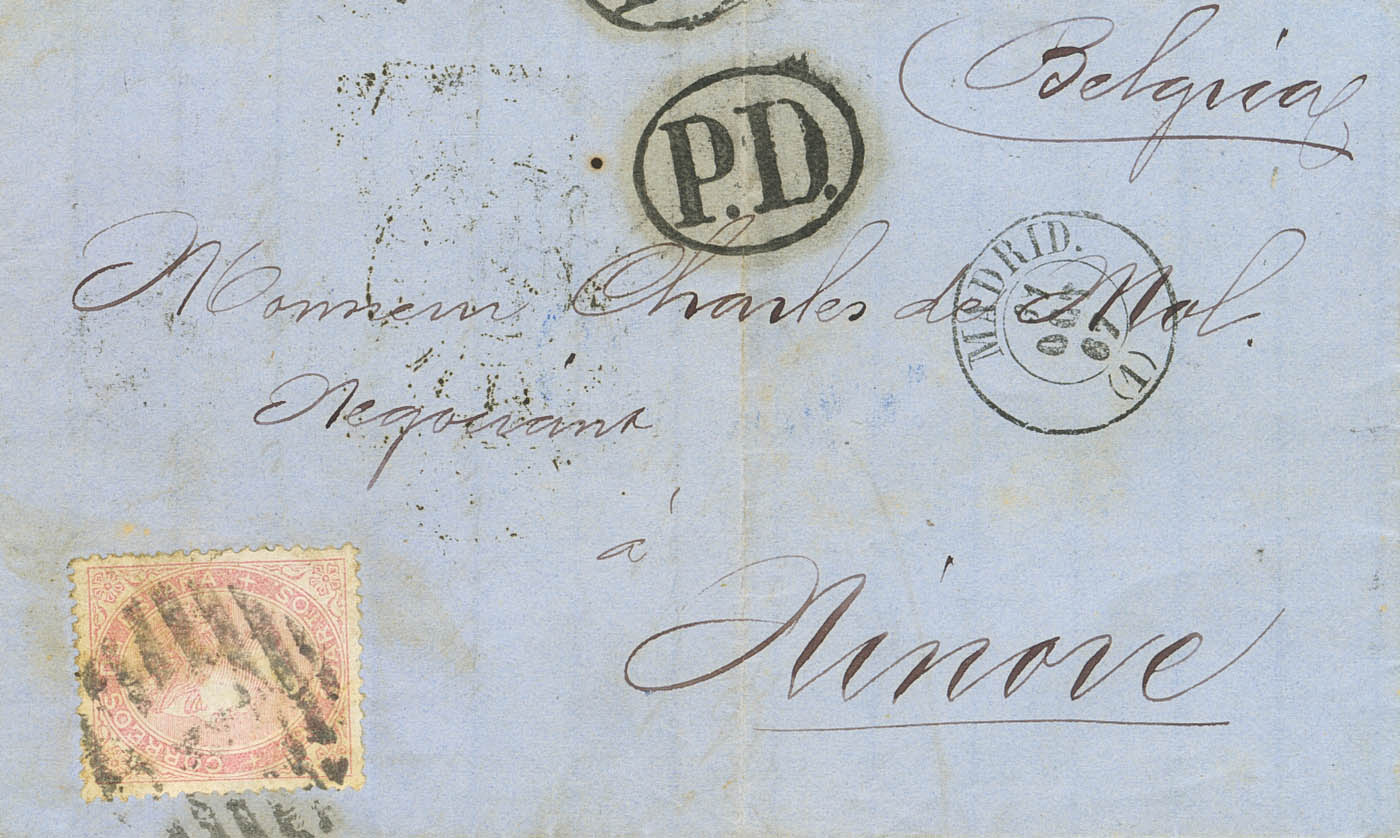 Belgica
P.D.
Monsieur Charles de Mol.
MADRID.
OCT
67
(1)
Negociant
à
Ninove
CORREOS